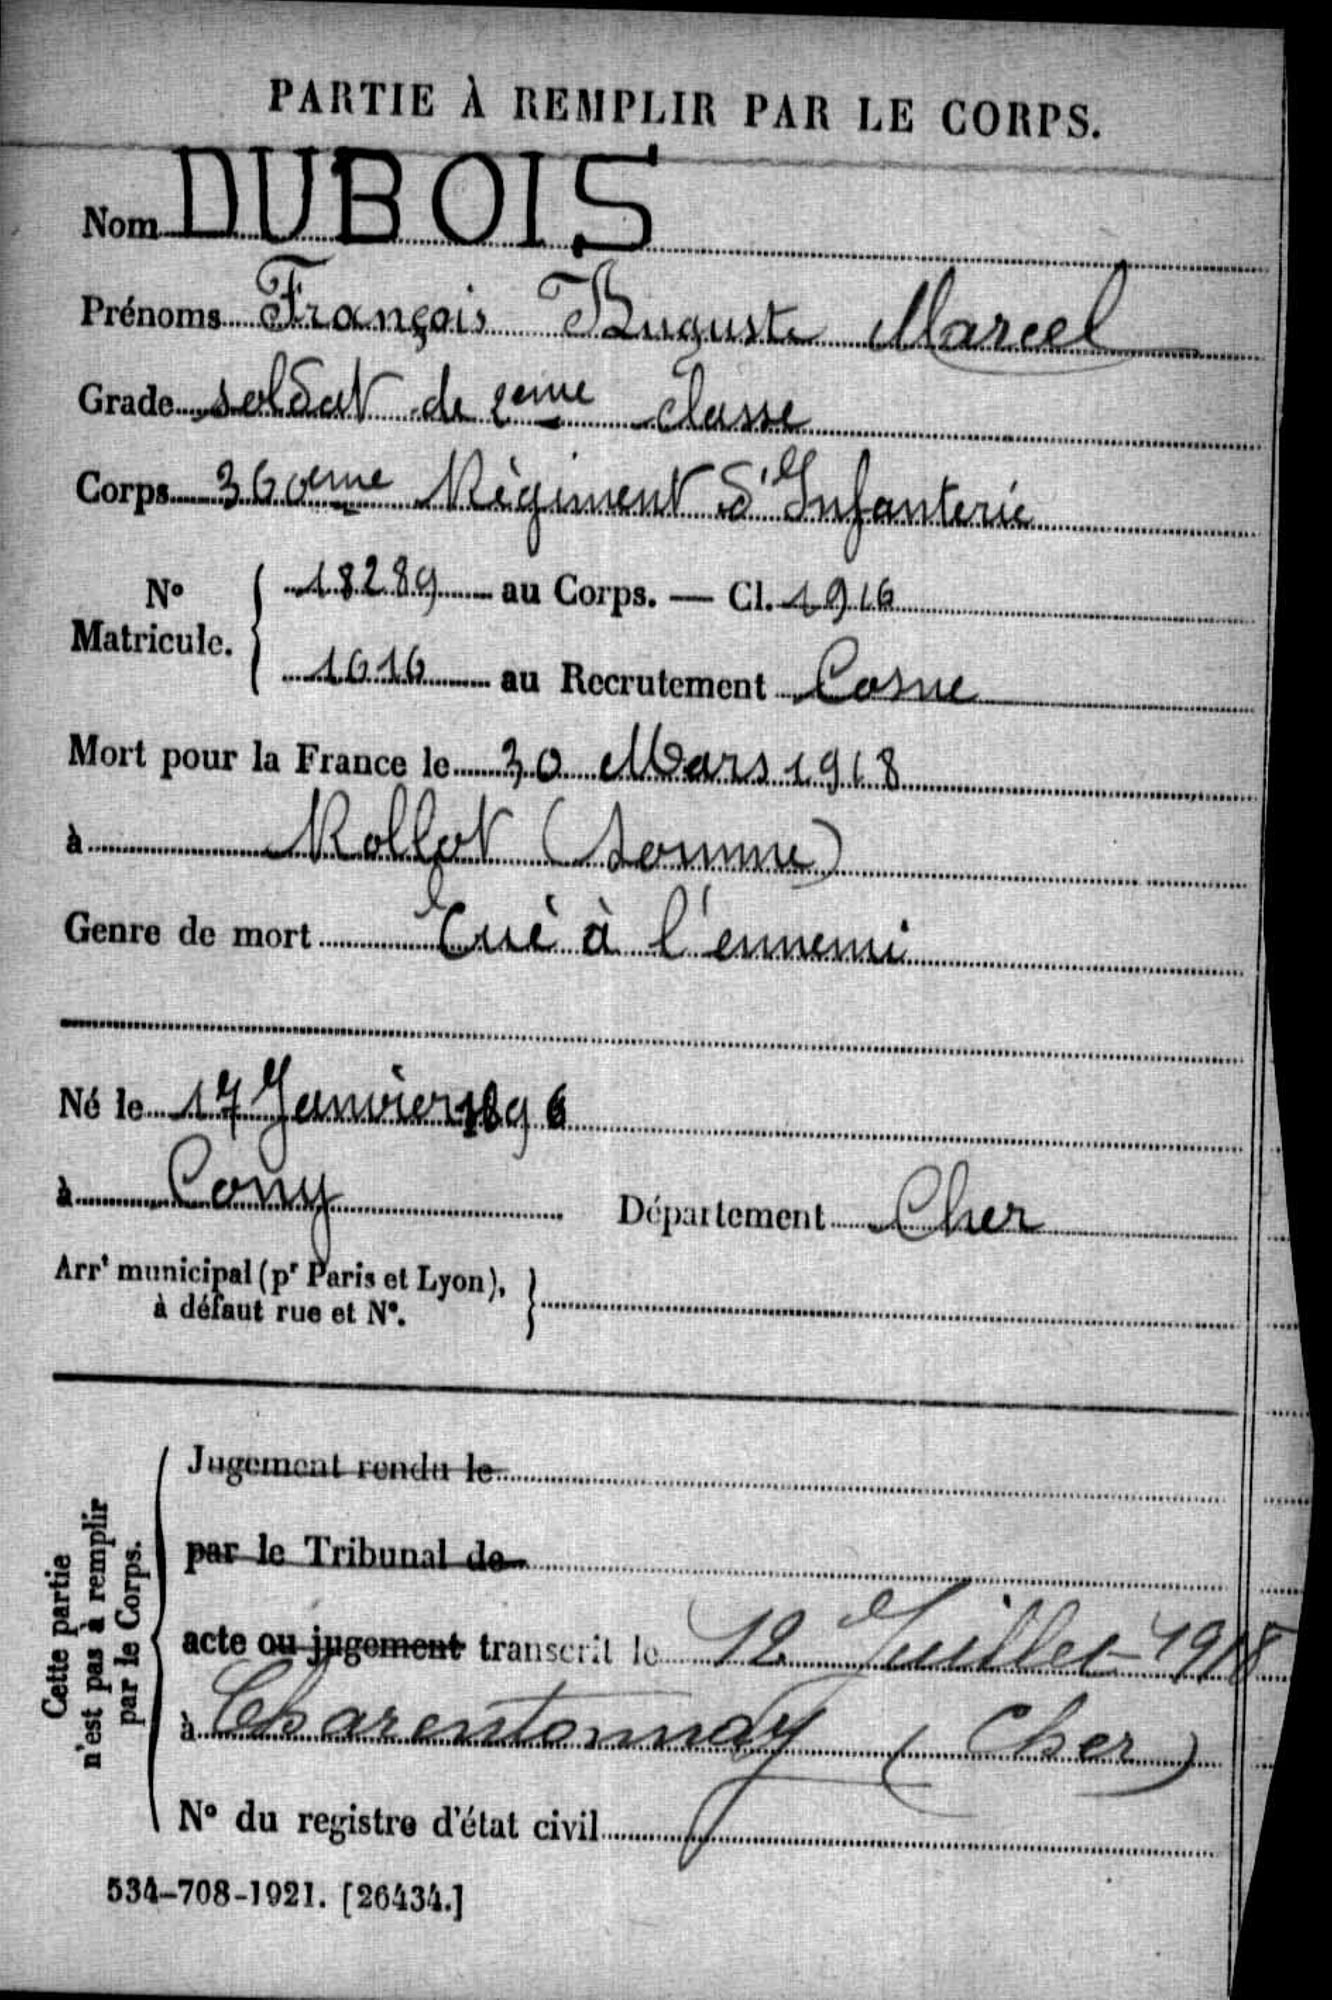 PARTIE À REMPLIR PAR LE CORPS.
Nom DUBOIS
Prénoms François Auguste Marcel
Grade soldat de 2eme classe
Corps 360eme Régiment d'Infanterie
No Matricule. { 18289 au Corps. — Cl. 1916
1616 au Recrutement Cosne
Mort pour la France le 30 Mars 1918
à Rollot (Somme)
Genre de mort Tué à l'ennemi
Né le 17 Janvier 1896
à Cony Département Cher
Arrt municipal (pr Paris et Lyon),
à défaut rue et No.
Cette partie
n'est pas à remplir
par le Corps.
Jugement rendu le
par le Tribunal de
acte ou jugement transcrit le 12 Juillet 1918
à Charentonnay (Cher)
No du registre d'état civil
534-708-1921. [26434.]